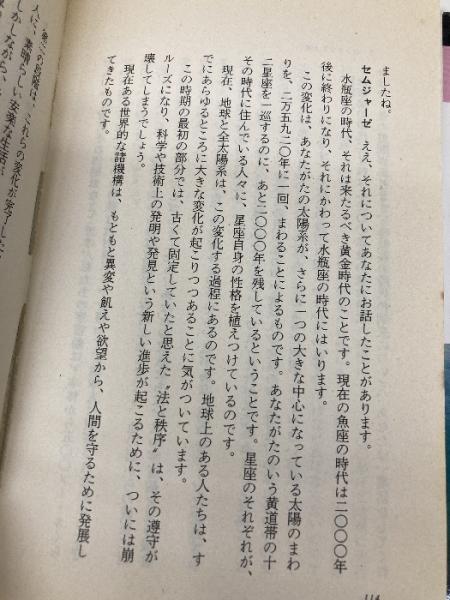 ましたね。
セムジャーゼ　ええ、それについてあなたにお話したことがあります。
水瓶座の時代、それは来たるべき黄金時代のことです。現在の魚座の時代は二〇〇〇年
後に終わりになり、それにかわって水瓶座の時代にはいります。
この変化は、あなたがたの太陽系が、さらに一つの大きな中心になっている太陽のまわ
りを、二万五九二〇年に一回、まわることによるものです。あなたがたのいう黄道帯の十
二星座を一巡するのに、あと二〇〇〇年を残しているということです。星座のそれぞれが、
その時代に住んでいる人々に、星座自身の性格を植えつけているのです。
現在、地球と全太陽系は、この変化する過程にあるのです。地球上のある人たちは、す
でにあらゆるところに大きな変化が起こりつつあることに気がついています。
この時期の最初の部分では、古くて固定していたと思えた〝法と秩序〟は、その遵守が
ルーズになり、科学や技術上の発明や発見という新しい進歩が起こるために、ついには崩
壊してしまうでしょう。
現在ある世界的な諸機構は、もともと異変や飢えや欲望から、人間を守るために発展し
てきたものです。
しかしながら、
人に、素晴らしい安楽な生活が
それらの変化が完了した
114